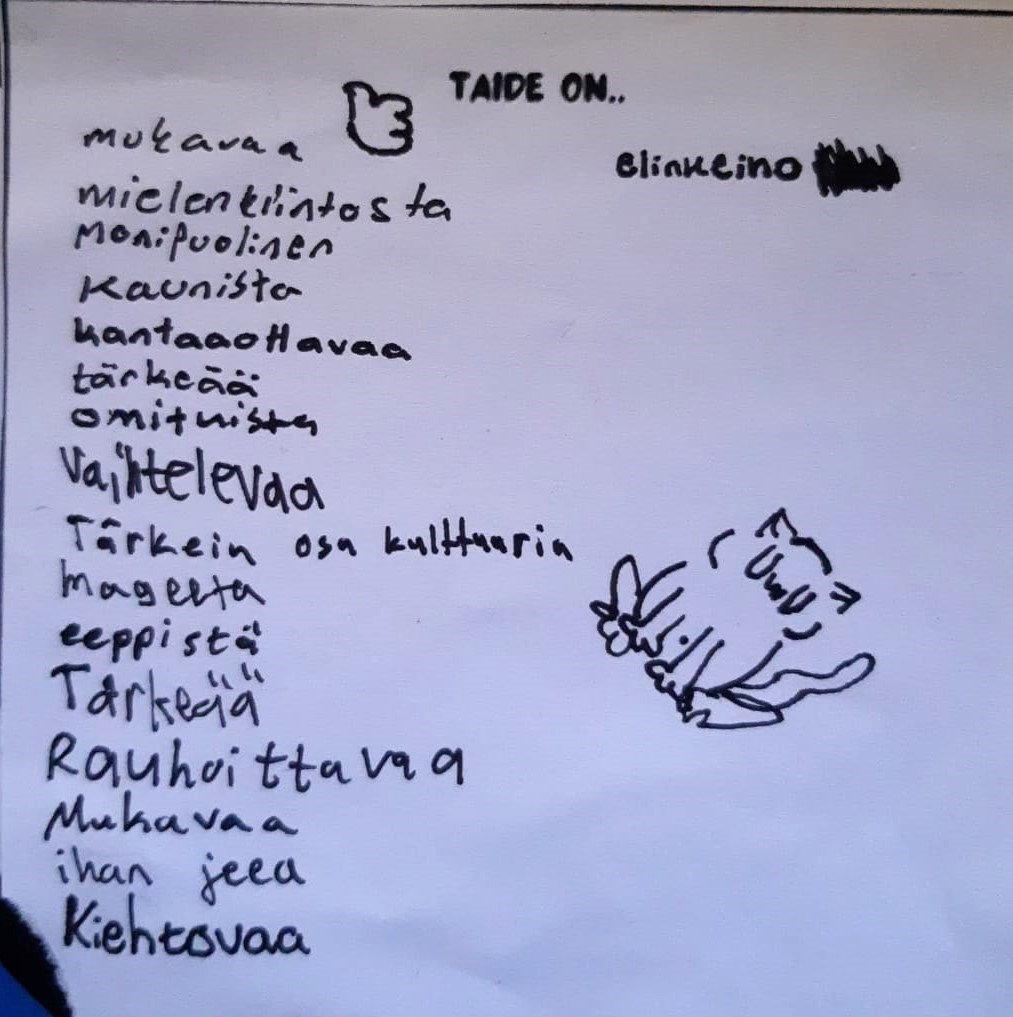 TAIDE ON..
mukavaa
elinkeino
mielenkiintosta
Monipuolinen
Kaunista
kantaaottavaa
tärkeää
omituista
Vaihtelevaa
Tärkein osa kulttuuria
Mageeta
eeppistä
Tärkeää
Rauhoittavaa
Mukavaa
ihan jeea
Kiehtovaa